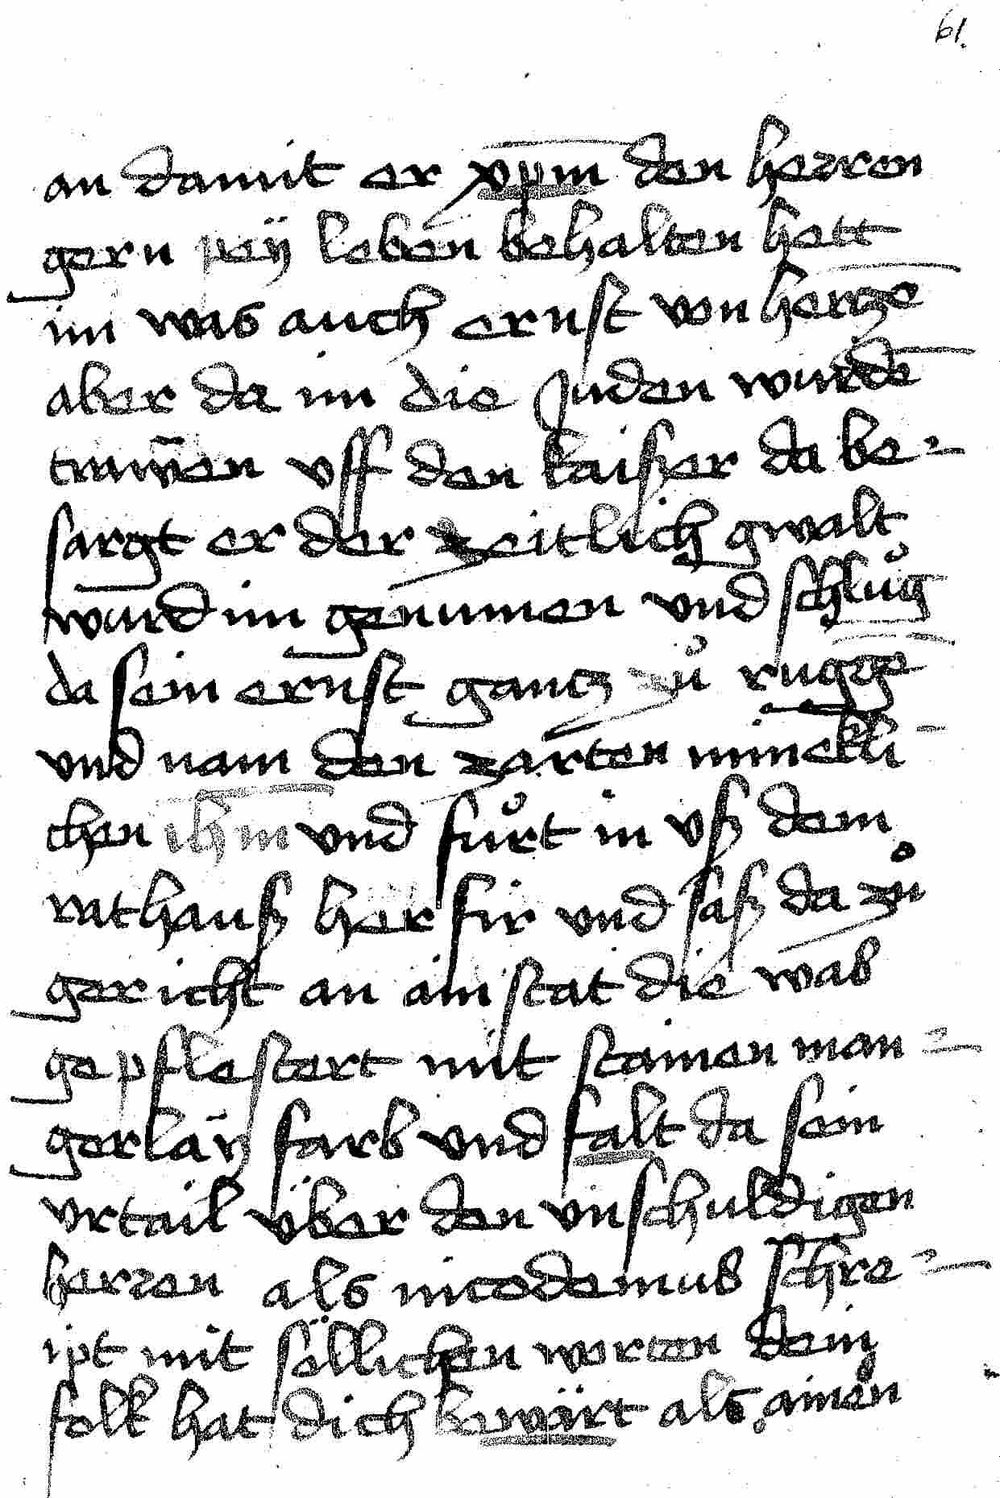 61.
an damit er xp̄m den herren
gern peÿ leben behalten hett
im was auch ernst von hertzē
aber da im die Juden wurdē
trawen vff den kaiser da be=
sargt er der zeitlich gwalt
wurd im genumen und schlůg
da sein ernst gantz zů ruggē
und nam den zarten minekli-
chen ih̄m und fůrt in vsz dem
rathausz her fir und sasz da zů
gericht an ain stat die was
gepflestert mit stainen man=
gerläy farb und falt da sein
vrtail über den vnschuldigen
herren als nicodemus schre=
ipt mit söllichen worten dein
folk hat dich bewärt als ainen